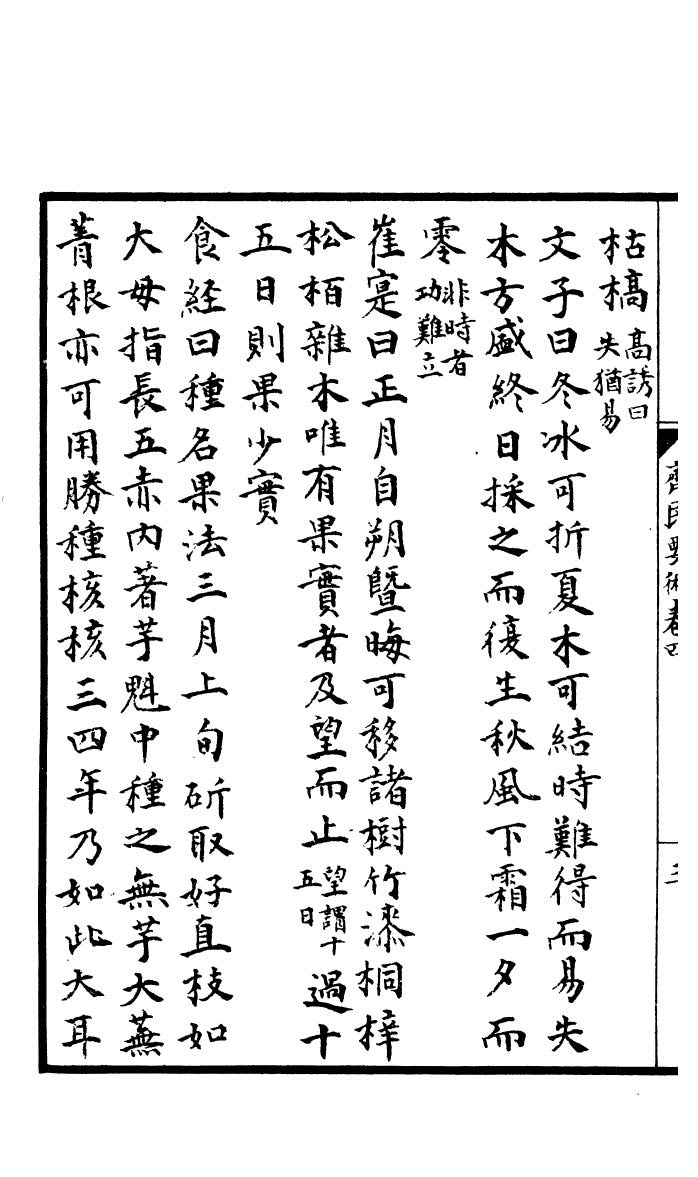 齊民要術卷四
三
枯槁高誘曰失猶易
文子曰冬冰可折夏木可結時難得而易失
木方盛終日採之而復生秋風下霜一夕而
零非時者功難立
崔寔曰正月自朔暨晦可移諸樹竹漆桐梓
松栢雜木唯有果實者及望而止望謂十五日過十
五日則果少實
食經曰種名果法三月上旬斫取好直枝如
大母指長五赤內著芋魁中種之無芋大蕪
菁根亦可用勝種核核三四年乃如此大耳